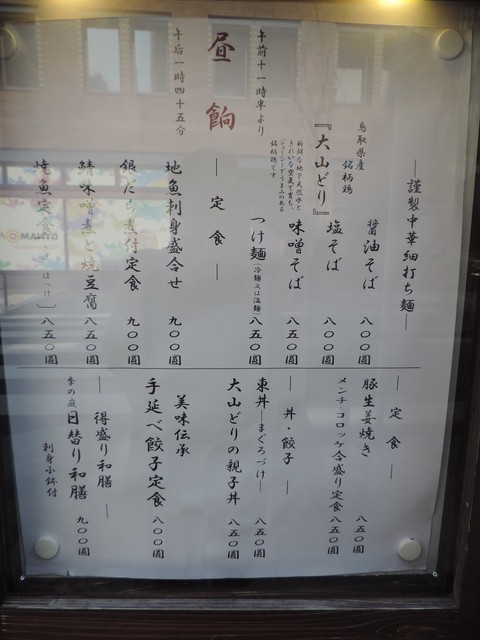 昼餉
午前十一時半より
午后一時四十五分
―謹製中華細打ち麺―
鳥取県産
銘柄鶏
『大山どり』
新鮮な地下天然水と
きれいな空気で育ち、
ジューシーでうまみのある
銘柄鶏です
醤油そば 八〇〇圓
塩そば 八〇〇圓
味噌そば 八五〇圓
つけ麺(冷麺又は温麺) 八五〇圓
―定食―
地魚刺身盛合せ 九〇〇圓
銀だら煮付定食 九〇〇圓
鯖味噌煮と焼豆腐 八五〇圓
焼魚定食 八五〇圓
―定食―
豚生姜焼き 八五〇圓
メンチ・コロッケ合盛り定食 八五〇圓
―丼・餃子―
東丼―まぐろづけ― 八五〇圓
大山どりの親子丼 八五〇圓
美味伝承
手延べ餃子定食 八〇〇圓
―得盛り和膳―
季の庭 日替り和膳 九〇〇圓
刺身小鉢付